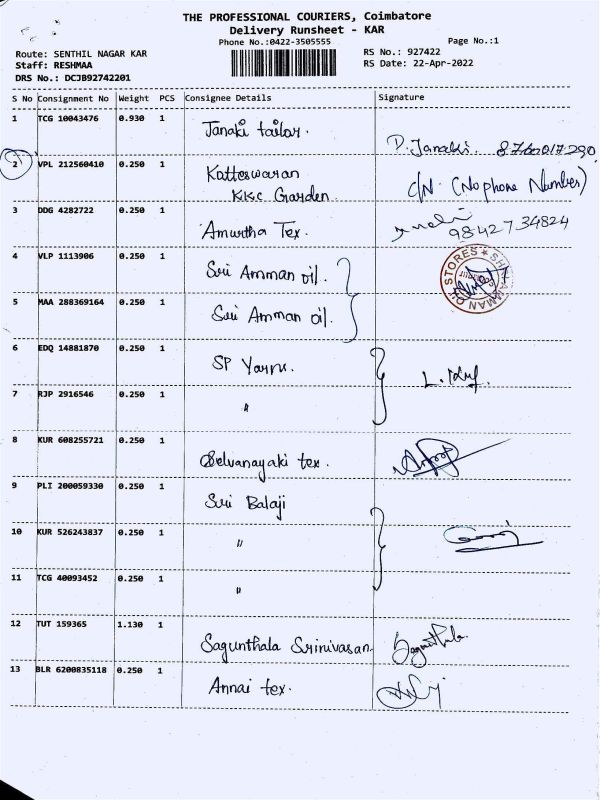 THE PROFESSIONAL COURIERS, Coimbatore
Delivery Runsheet - KAR
Phone No.:0422-3505555
Page No.:1
Route: SENTHIL NAGAR KAR
RS No.: 927422
Staff: RESHMAA
RS Date: 22-Apr-2022
DRS No.: DCJB92742201
S No Consignment No Weight PCS Consignee Details Signature
1 TCG 10043476 0.930 1 Janaki tailor. P. Janaki.
2 VPL 212560410 0.250 1 Katteswaran C/N. (No phone Number)
KKC Garden
3 DDG 4282722 0.250 1 Amurtha Tex. 98427 34824
4 VLP 1113906 0.250 1 Sri Amman oil.
STORES ★
5 MAA 288369164 0.250 1 Sri Amman oil.
6 EDQ 14881870 0.250 1 SP Yarns.
7 RJP 2916546 0.250 1 "
8 KUR 608255721 0.250 1 Selvanayaki tex.
9 PLI 200059330 0.250 1 Sri Balaji
10 KUR 526243837 0.250 1 "
11 TCG 40093452 0.250 1 "
12 TUT 159365 1.130 1 Sagunthala Srinivasan Sagunthala
13 BLR 6200835118 0.250 1 Annai tex.